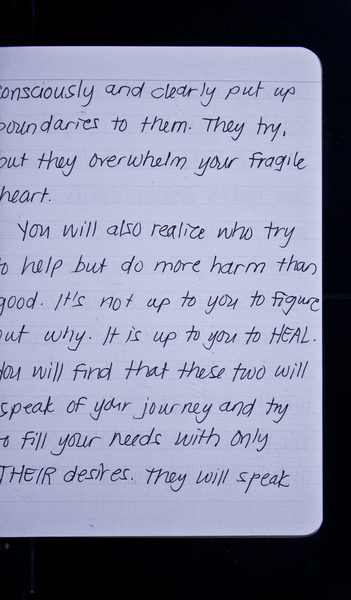 consciously and clearly put up
boundaries to them. They try,
but they overwhelm your fragile
heart.
You will also realize who try
to help but do more harm than
good. It's not up to you to figure
out why. It is up to you to HEAL.
You will find that these two will
speak of your journey and try
to fill your needs with only
THEIR desires. They will speak